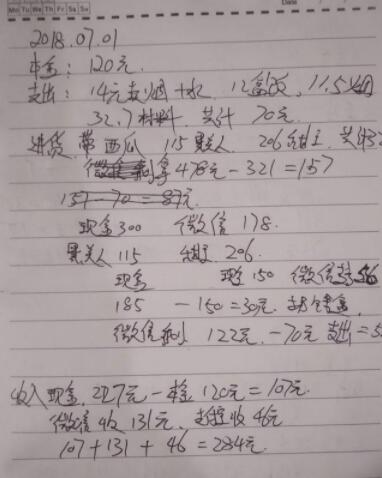 Mo Tu We Th Fr Sa Su Date
2018.07.01
本金: 120元.
支出: 14元 烟+水 12 11.5
32.7材料. 共计 70元.
进货. 带西瓜 115 黑美人 206 甜王 共计3
微信 拿478元-321=157
157-70=87元
现金300 微信178.
黑美人115 甜王206.
现金 现金150 微信 56
185 -150=30元.
微信 122元.-70元支出=5
收入现金.227元-本金120元=107元.
微信收131元. 收46元
107+131+46=284元.